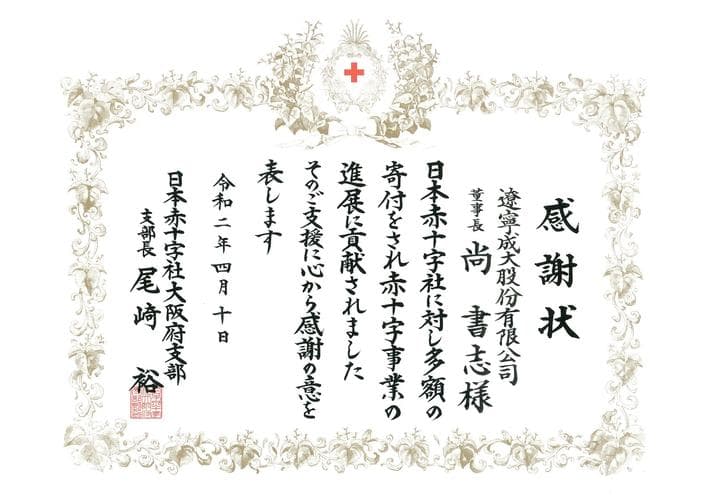 感謝状
遼寧成大股份有限公司
董事長 尚書志様
日本赤十字社に対し多額の
寄付をされ赤十字事業の
進展に貢献されました
そのご支援に心から感謝の意を
表します
令和二年四月十日
日本赤十字社大阪府支部
支部長 尾崎 裕